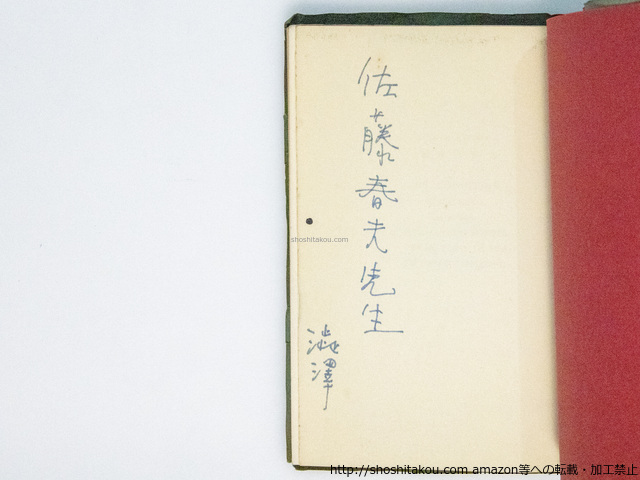 佐藤春夫先生
澁澤
shoshitakou.com
http://shoshitakou.com amazon等への転載・加工禁止